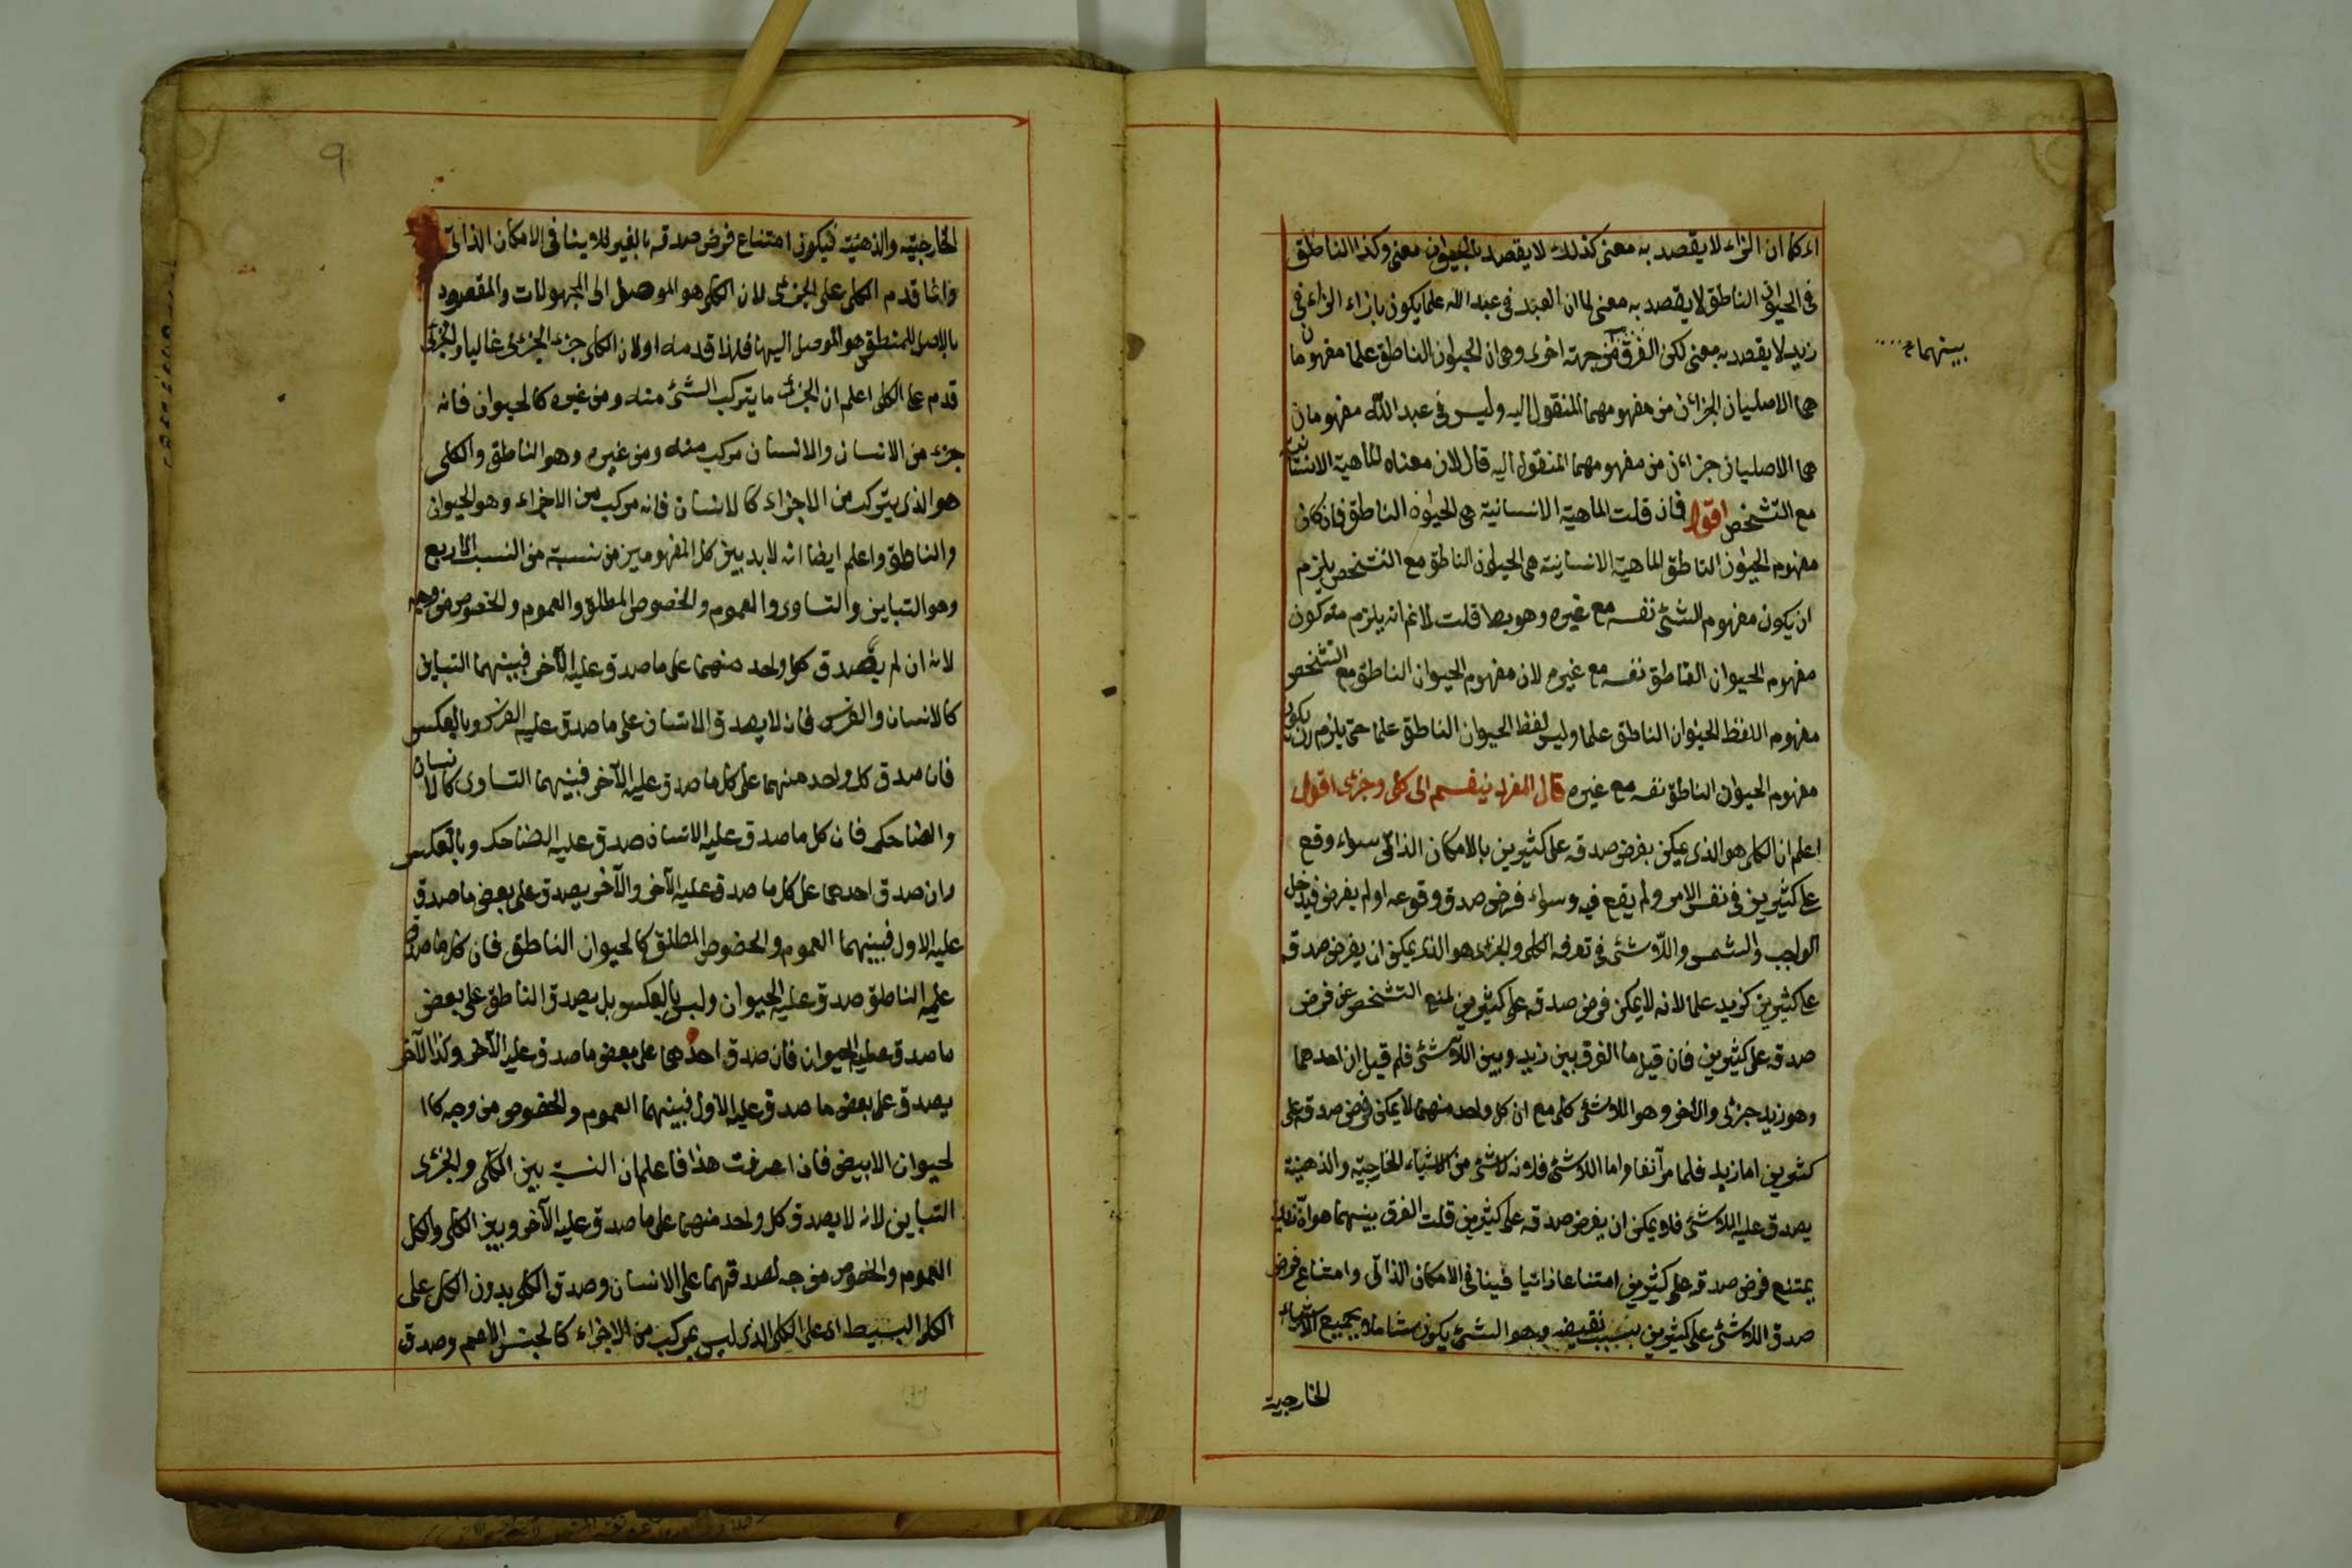 اى كما ان الزاء لا يقصد به معنى كذلك لا يقصد بالحيوان معنى وكذا الناطق
فى الحيوان الناطق لا يقصد به معنى لما ان العبد فى عبد الله علما يكون بازاء الزاء فى
زيد لا يقصد به معنى لكن الفرق من جهة اخرى وهى ان الحيوان الناطق علما مفهومان
بينهما
هما الاصليان الجزءان من مفهومهما المنقول اليه وليس فى عبد الله مفهومان
هما الاصليان جزءان من مفهومهما المنقول اليه قال لان معناه الماهية الانسانية
مع التشخص اقول فان قلت الماهية الانسانية هى الحيوان الناطق فان كان
مفهوم الحيوان الناطق الماهية الانسانية هى الحيوان الناطق مع التشخص يلزم
ان يكون مفهوم الشئ نفسه مع غيره وهو بط قلت لانم انه يلزم منه كون
مفهوم الحيوان الناطق نفسه مع غيره لان مفهوم الحيوان الناطق مع التشخص
مفهوم اللفظ الحيوان الناطق علما وليس لفظ الحيوان الناطق علما حتى يلزم ان يكون
مفهوم الحيوان الناطق نفسه مع غيره قال المفرد ينقسم الى كلى وجزئى اقول
اعلم ان الكلى هو الذى يمكن بفرض صدقه على كثيرين بالامكان الذاتى سواء وقع
على كثيرين فى نفس الامر ولم يقع فيه وسواء فرض صدق وقوعه او لم يفرض فيدخل
الواجب والشمس واللاشئ فى تعرفه الكلى والجزئى هو الذى يمكن ان يفرض صدقه
على كثيرين كزيد علما لانه لا يمكن فرض صدقه على كثيرين لمنع التشخص عن فرض
صدقه على كثيرين فان قيل ما الفرق بين زيد وبين اللاشئ فلم قيل ان احدهما
وهو زيد جزئى والاخر وهو اللاشئ كلى مع ان كل واحد منهما لا يمكن فرض صدقه على
كثيرين اما زيد فلما مر آنفا واما اللاشئ فلانه لا شئ من الاشياء الخارجية والذهنية
يصدق عليه اللاشئ فلا يمكن ان يفرض صدقه على كثيرين قلت الفرق بينهما هو ان زيدا
يمتنع فرض صدقه على كثيرين امتناعا ذاتيا فينافى الامكان الذاتى وامتناع فرض
صدق اللاشئ على كثيرين بسبب نقيضه وهو الشئ يكون شاملا بجميع الاشياء
الخارجية
٩
الخارجية والذهنية فيكون امتناع فرض صدقه بالغير فلا ينافى الامكان الذاتى
وانما قدم الكلى على الجزئى لان الكلى هو الموصل الى المجهولات والمقصود
بالاصل للمنطقى هو الموصل اليها فلهذا قدمه او لان الكلى جزء الجزئى غالبا والجزئى
قدم على الكلى اعلم ان الجزئ ما يتركب الشئ منه ومن غيره كالحيوان فانه
جزء من الانسان والانسان مركب منه ومن غيره وهو الناطق والكلى
هو الذى يتركب من الاجزاء كالانسان فانه مركب من الاجزاء وهو الحيوان
والناطق واعلم ايضا انه لابد بين كل المفهومين من نسبة من النسب الاربع
وهو التباين والتساوى والعموم والخصوص المطلق والعموم والخصوص من وجه
لانه ان لم يصدق كل واحد منهما على ما صدق عليه الآخر فبينهما التباين
كالانسان والفرس فانه لا يصدق الانسان على ما صدق عليه الفرس وبالعكس
فان صدق كل واحد منهما على كل ما صدق عليه الآخر فبينهما التساوى كالانسان
والضاحك فان كل ما صدق عليه الانسان صدق عليه الضاحك وبالعكس
وان صدق احدهما على كل ما صدق عليه الآخر والآخر يصدق على بعض ما صدق
عليه الاول فبينهما العموم والخصوص المطلق كالحيوان الناطق فان كل ما صدق
عليه الناطق صدق عليه الحيوان وليس بالعكس بل يصدق الناطق على بعض
ما صدق عليه الحيوان فان صدق احدهما على بعض ما صدق عليه الآخر وكذا الآخر
يصدق على بعض ما صدق عليه الاول فبينهما العموم والخصوص من وجه كا
لحيوان الابيض فان اعرفت هذا فاعلم ان النسبة بين الكلى والجزئى
التباين لانه لا يصدق كل واحد منهما على ما صدق عليه الآخر وبين الكلى والكل
العموم والخصوص من وجه لصدقهما على الانسان وصدق الكلى بدون الكل على
الكلى البسيط اى على الكلى الذى ليس بمركب من الاجزاء كالجنس الاعم وصدق